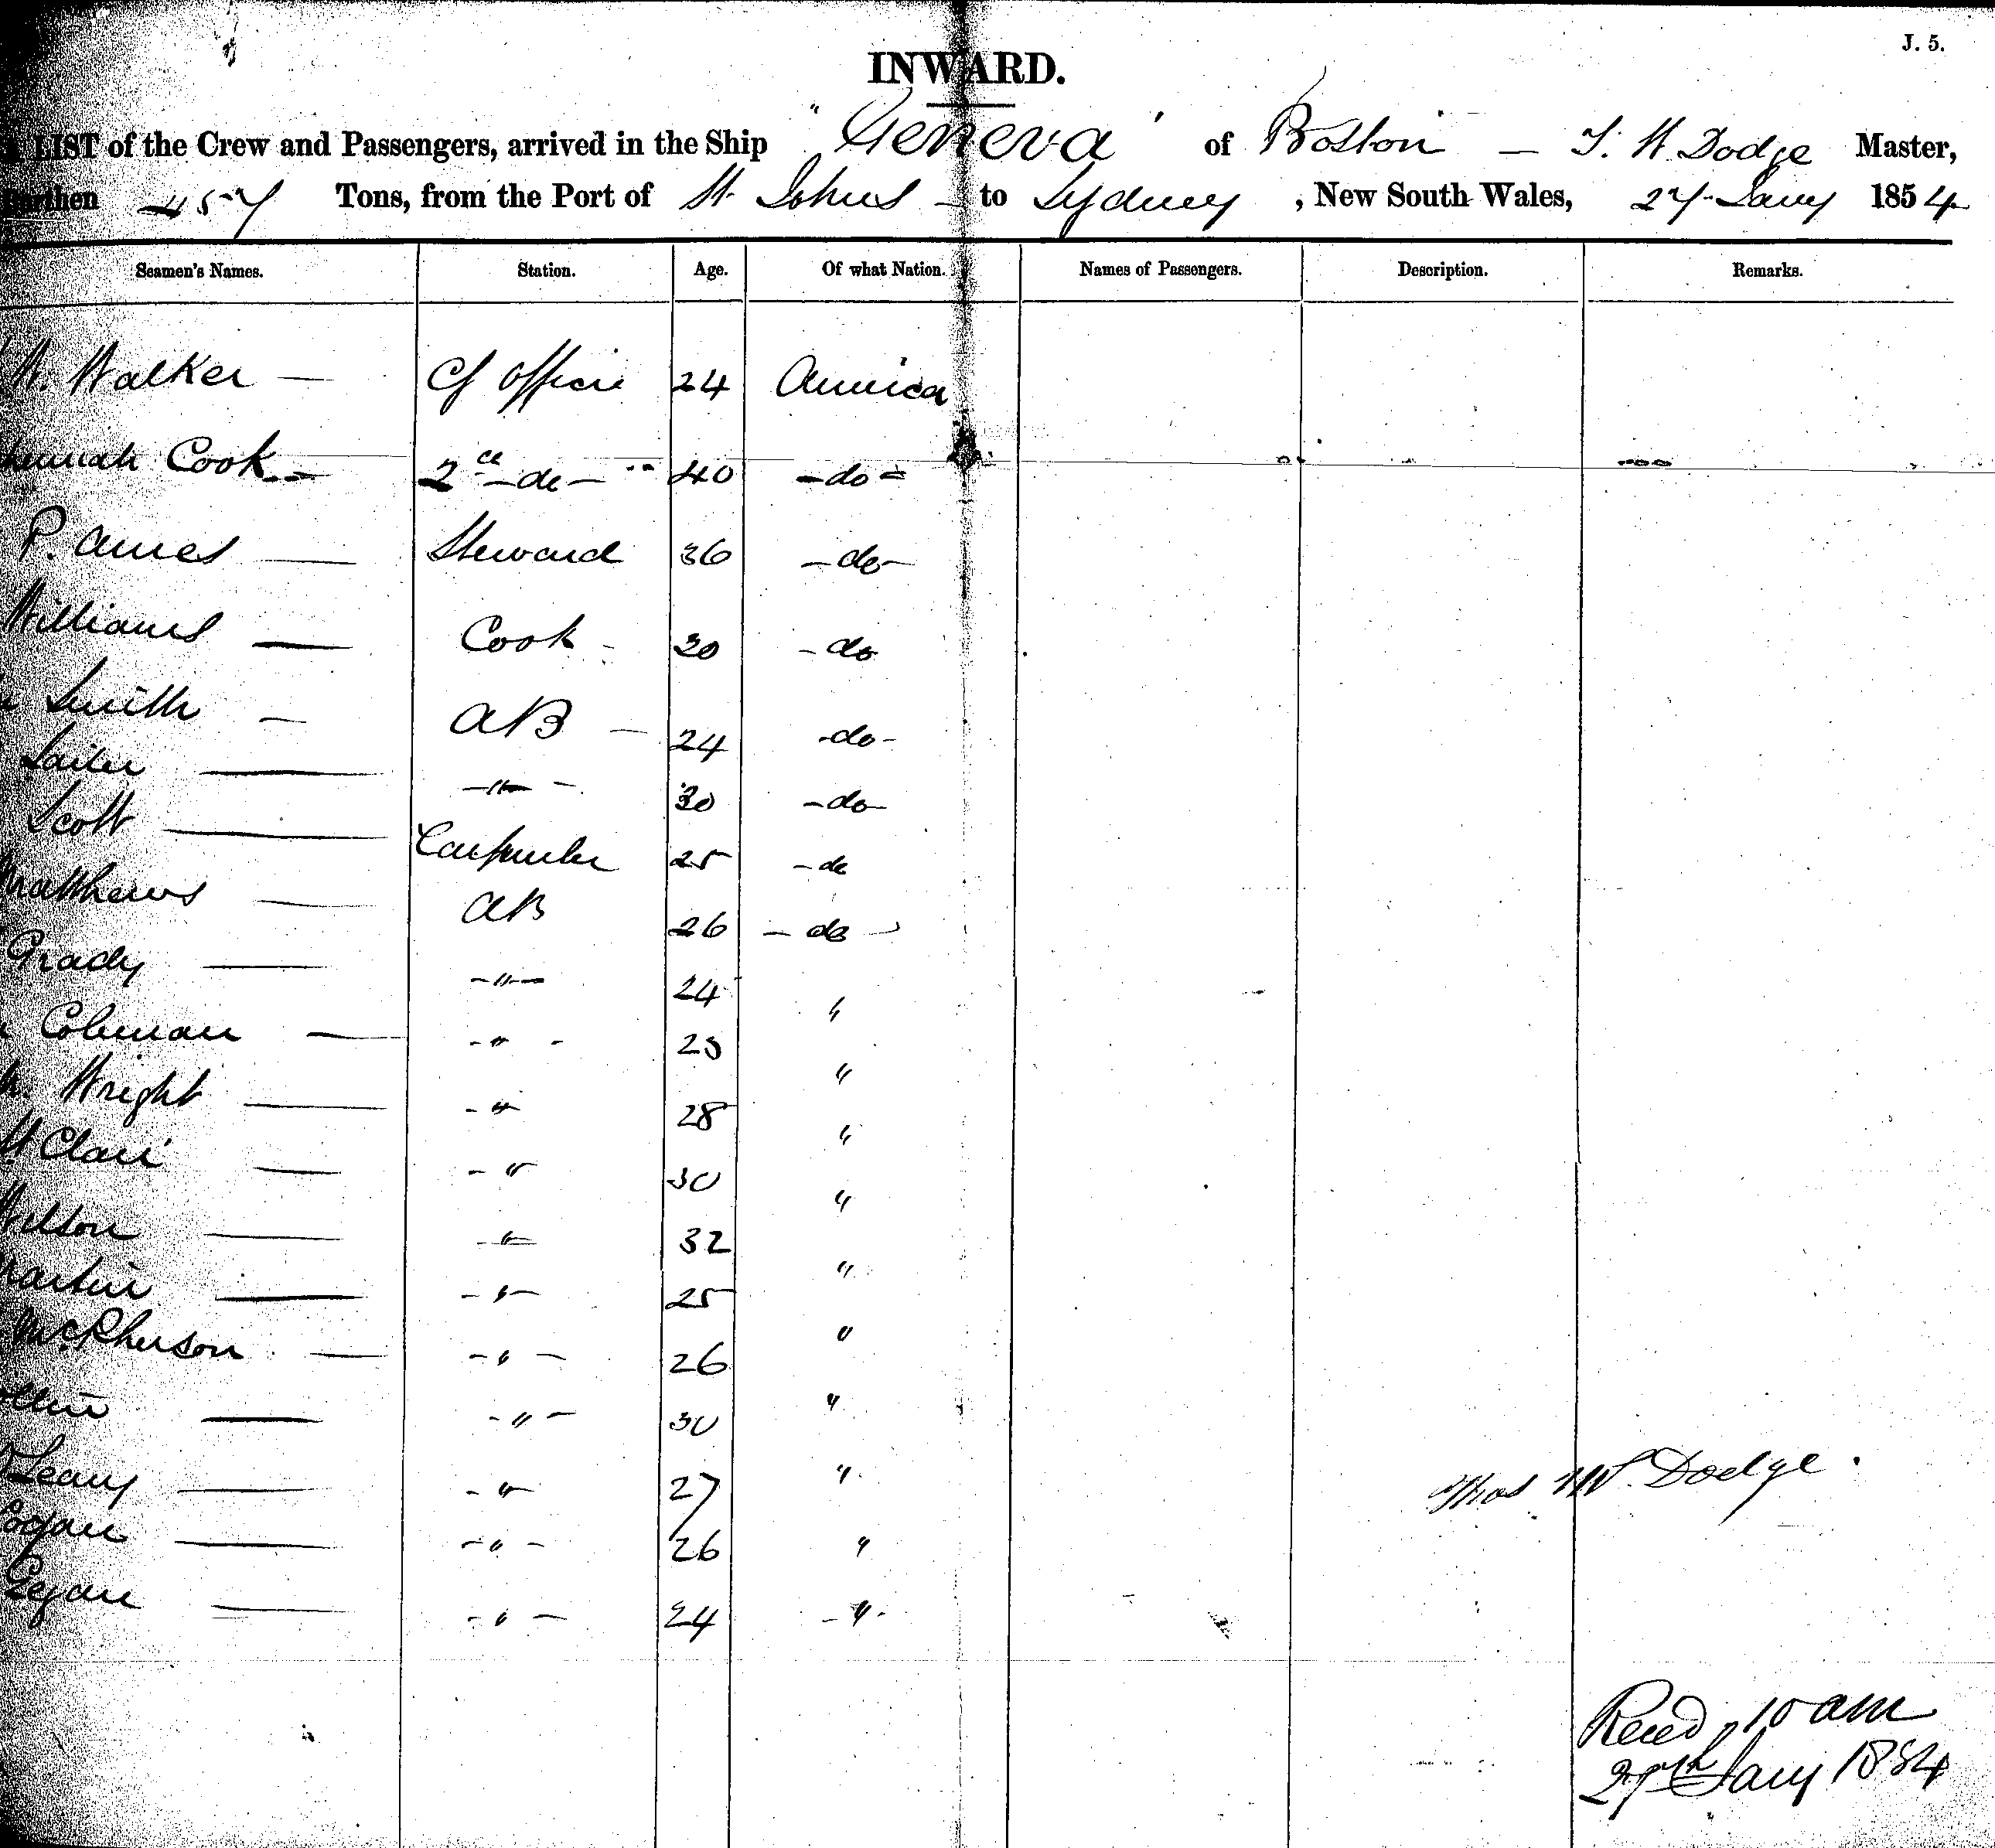 J. 5.
INWARD.
LIST of the Crew and Passengers, arrived in the Ship "Geneva" of Boston — T. W. Dodge Master,
Burthen 457 Tons, from the Port of St. Johns — to Sydney, New South Wales, 27 Jany 1854
Seamen's Names. Station. Age. Of what Nation. Names of Passengers. Description. Remarks.
W. Walker — Cf Officer 24 America
Cook — 2nd - do - 40 - do -
P. Ames — Steward 36 - do -
Williams — Cook - 30 - do
Smith — AB — 24 - do -
Sailer — - " - 30 - do -
Scott — Carpenter 25 - do
Matthews — AB 26 - do -
Grady — - " - 24 "
Coleman — - " - 25 "
Wright — - " 28 "
St Clair — - " 30 "
Wilson — - " - 32 "
Martin — - " - 25 "
McPherson — - " - 26 "
- " - 30 "
Leary — - " - 27 "
Cogan — - " - 26 "
Regan — - " - 24 - " -
Thos W. Dodge.
Recd 10 am
27th Jany 1854